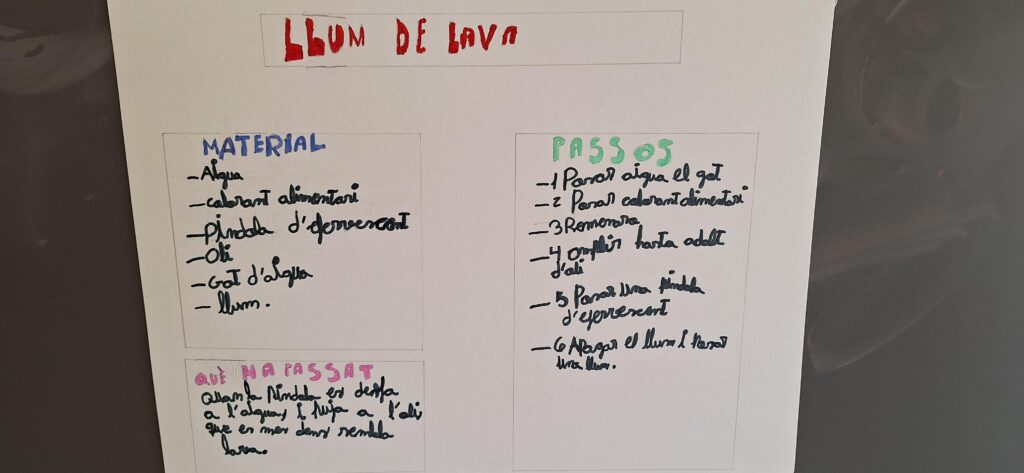 LLUM DE LAVA
MATERIAL
- Aigua
- colorant alimentari
- pindola d'efervescent
- Oli
- Got d'aigua
- llum.
QUÈ HA PASSAT
Quan la pindola es desfa
a l'aigua, i puja a l'oli
que es mes dens sembla
lava.
PASSOS
- 1 Posar aigua el got
- 2 Posar colorant alimentari
- 3 Remenara
- 4 omplir hasta adalt
d'oli
- 5 Posar una pindola
d'efervescent
- 6 Apagar el llum i posar
una llum.